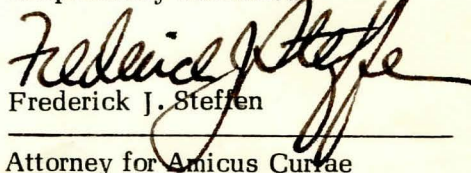 Frederick J. Steffen
Frederick J. Steffen
Attorney for Amicus Curiae